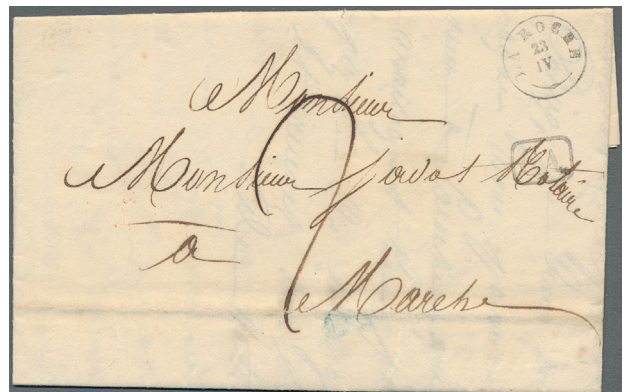 LA ROCHE
23
IV
Monsieur
Monsieur Jovot Notaire
à
Marche